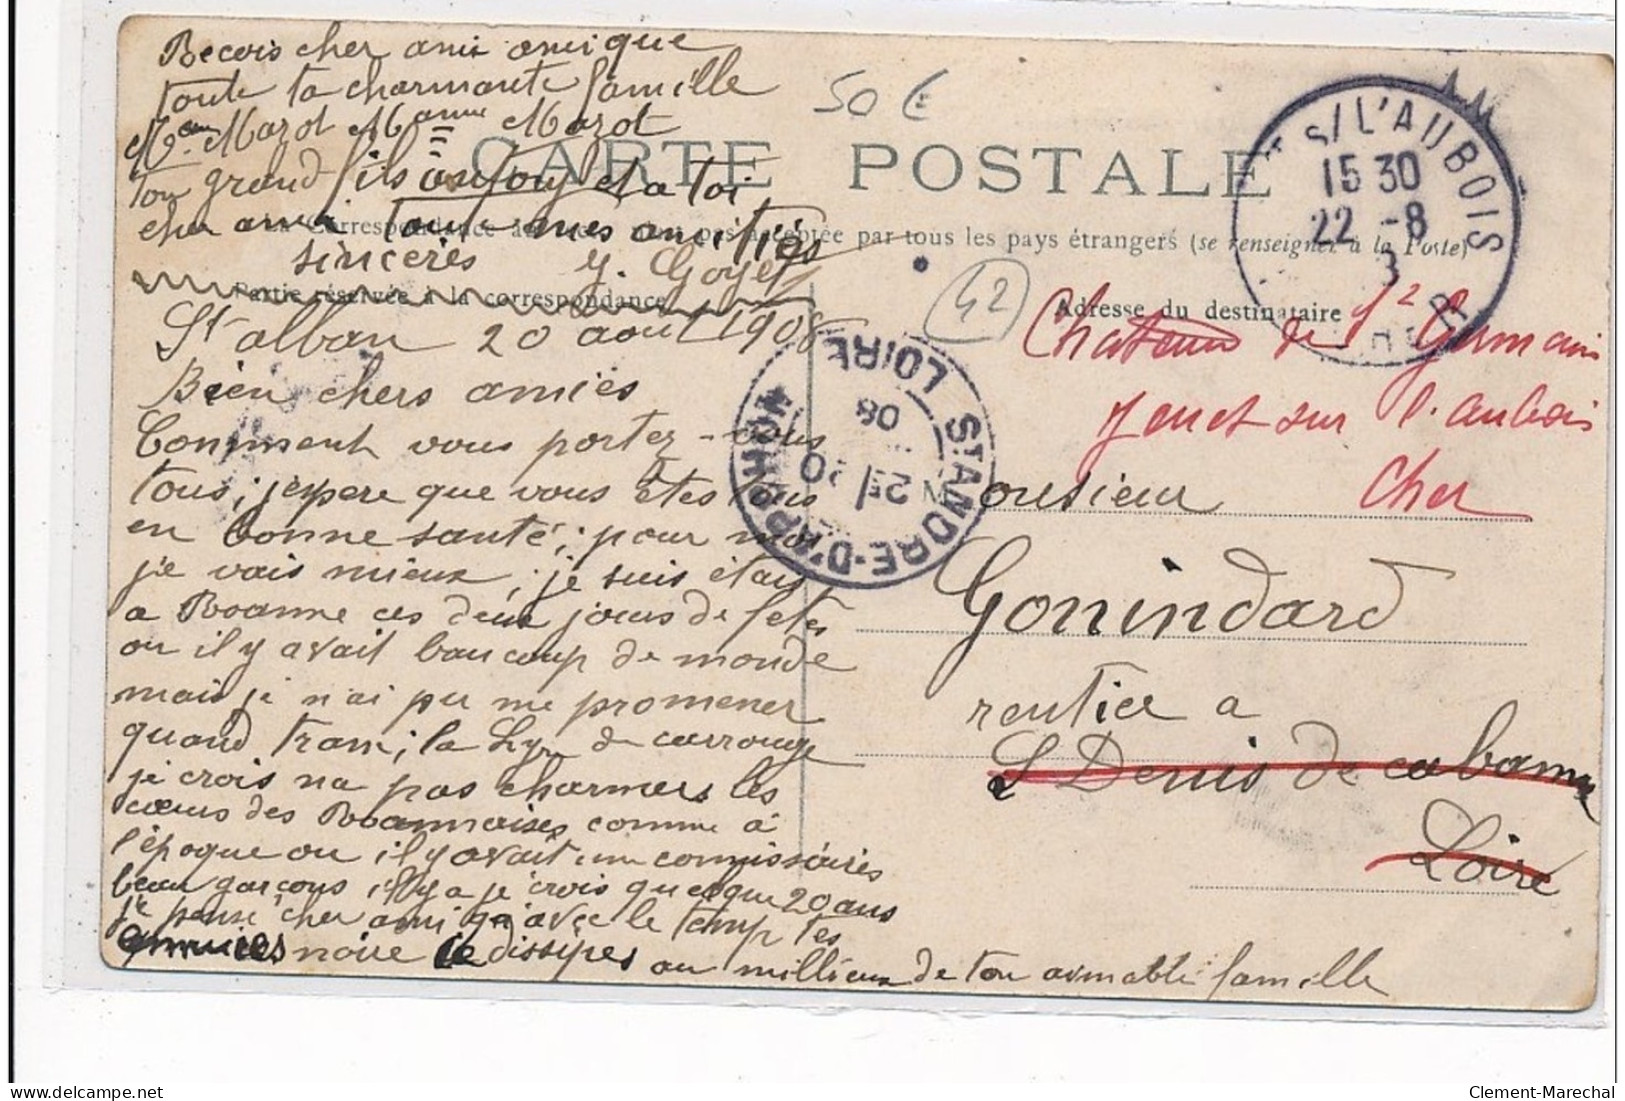 Recois cher ami ainsi que
toute ta charmante famille
Mme Mazot Mazot
ton grand fils et a toi
cher ami toute mes amitiés
sinceres Y. Goyet
50 €
CARTE POSTALE
La Correspondance au recto n'est pas acceptée par tous les pays étrangers (se renseigner à la Poste)
Partie réservée à la correspondance
Adresse du destinataire
42
T S/ L'AUBOIS
15 30
22 -8
CHER
LOIRE
ST ANDRE-D'APCHON
21
08
St alban 20 aout 1908
Bien chers amies
Comment vous portez-vous
tous; j'espere que vous êtes tous
en bonne santé; pour moi
je vais mieux; je suis étais
a Roanne ces deux jours de fetes
ou il y avait baucoup de monde
mais je n'ai pu me promener
quand tram; la Lyre de carrouge
je crois na pas charmers les
cœurs des Roannaises comme à
l'époque ou il y avait un commissaires
beau garçons il y a je crois quelque 20 ans
je pense cher ami qu'avec le temp tes
noire ce dissipes au millieux de ton aimable famille
Chateau de St Germain
Jouet sur l'aubois
Cher
Monsieur
Gonindard
rentier a
St Denis de cabanne
Loire
Clement-Marechal